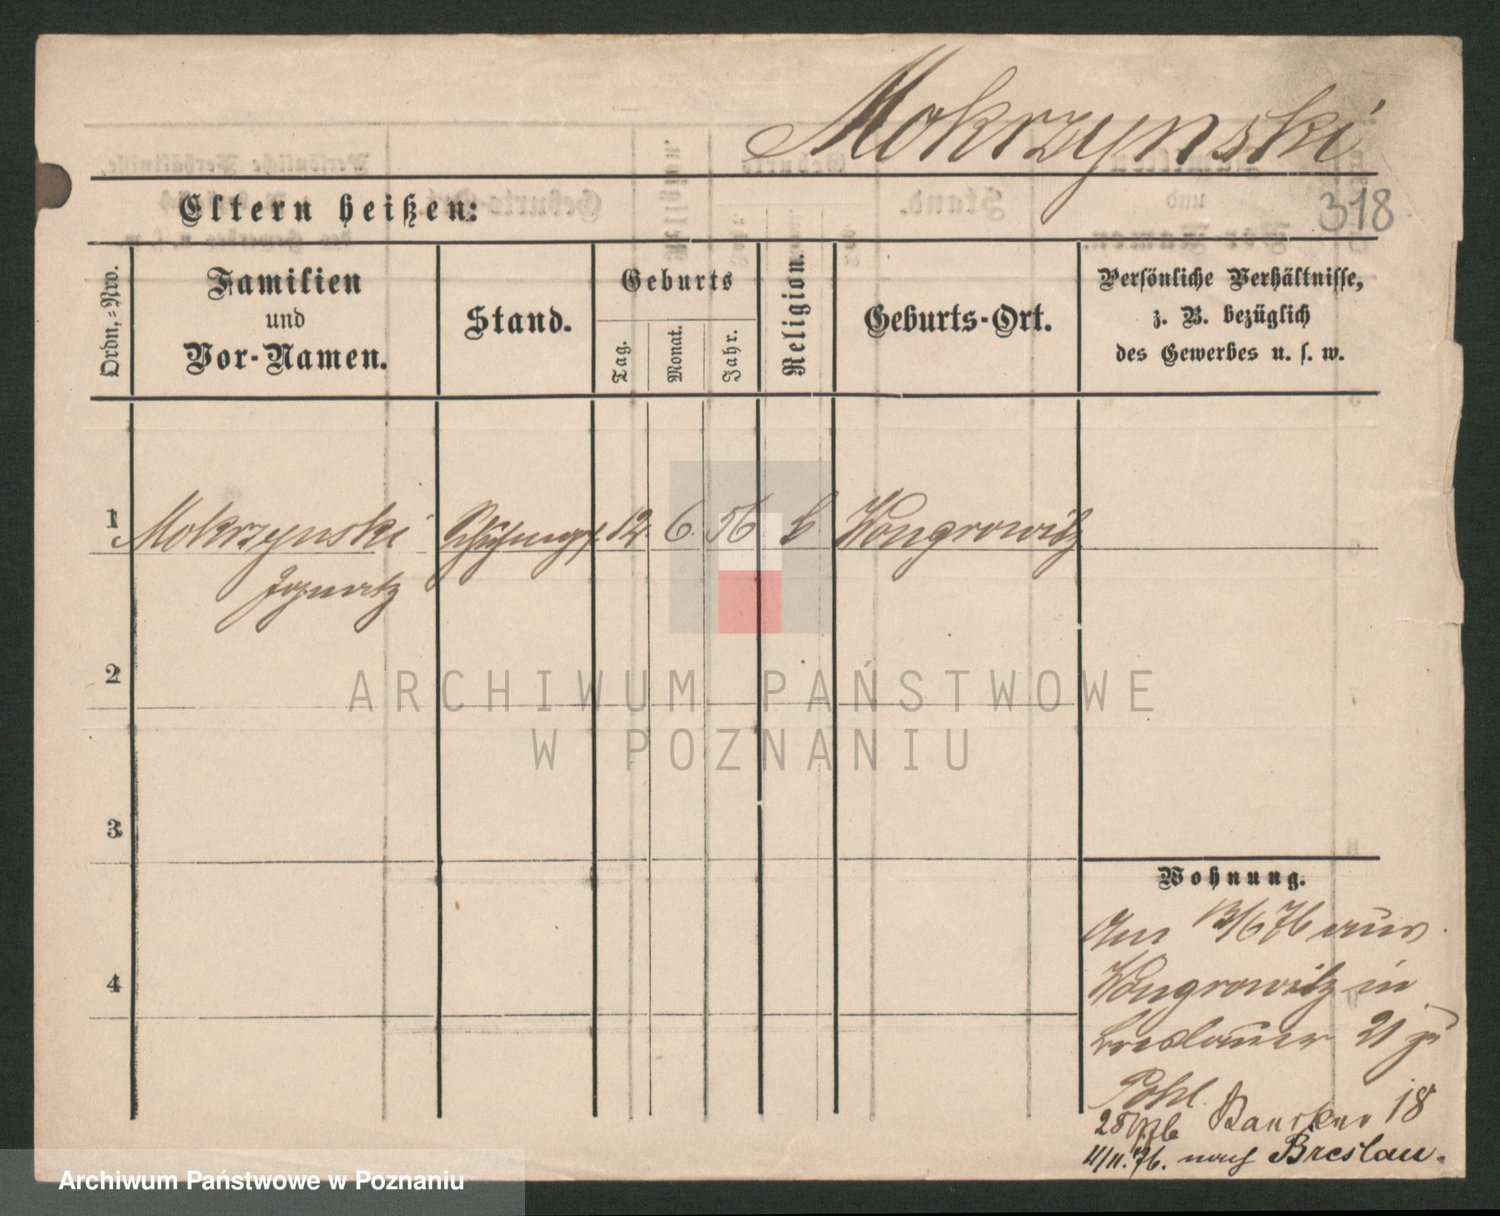 Mokrzynski
318
Eltern heißen:
Ordn.-Nro.
Familien
und
Vor-Namen.
Stand.
Geburts
Tag.
Monat.
Jahr.
Religion.
Geburts-Ort.
Persönliche Verhältnisse,
z. B. bezüglich
des Gewerbes u. s. w.
1 Mokrzynski 12. 6. 56 Wongrowitz
Ignatz
2
3
4
Wohnung.
Am 13/6 76 aus
Wongrowitz in
Breslauer 21 zu
Pohl.
18
11/11. 76. nach Breslau.
ARCHIWUM PAŃSTWOWE
W POZNANIU
Archiwum Państwowe w Poznaniu